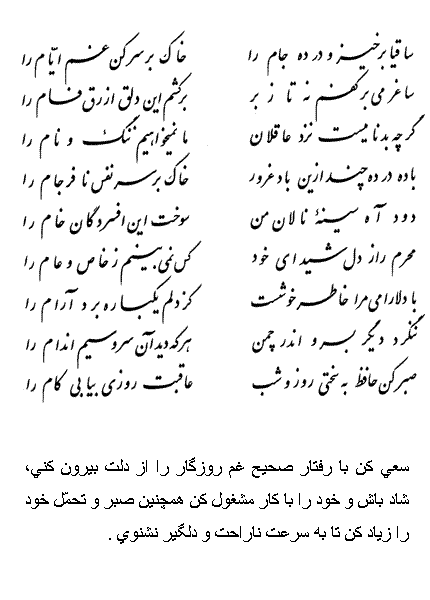 ساقیا برخیز و در ده جام را خاک بر سر کن غم ایّام را
ساغر می بر کفم نه تا ز بر برکشم این دلق ازرق فام را
گرچه بدنامیست نزد عاقلان ما نمیخواهیم ننگ و نام را
باده در ده چند ازین باد غرور خاک بر سر نفس نافرجام را
دود آه سینهٔ نالان من سوخت این افسردگان خام را
محرم راز دل شیدای خود کس نمی بینم ز خاص و عام را
با دلارامی مرا خاطر خوشست کز دلم یکباره برد آرام را
ننگرد دیگر بسرو اندر چمن هرکه دید آن سرو سیم اندام را
صبر کن حافظ به سختی روز و شب عاقبت روزی بیابی کام را
سعي کن با رفتار صحیح غم روزگار را از دلت بیرون کني،
شاد باش و خود را با کار مشغول کن همچنین صبر و تحمّل خود
را زیاد کن تا به سرعت ناراحت و دلگیر نشنوي .